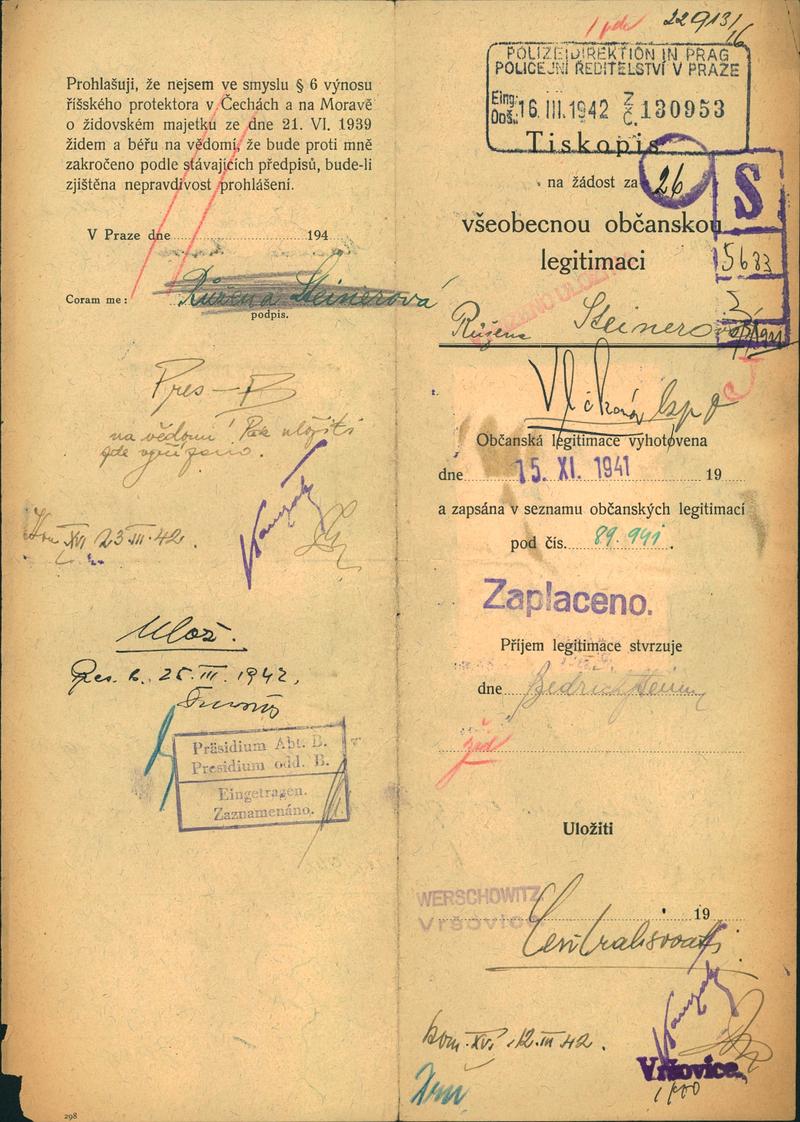 Prohlašuji, že nejsem ve smyslu § 6 výnosu
říšského protektora v Čechách a na Moravě
o židovském majetku ze dne 21. VI. 1939
židem a béřu na vědomí, že bude proti mně
zakročeno podle stávajících předpisů, bude-li
zjištěna nepravdivost prohlášení.
V Praze dne 194
Coram me:
Růžena Steinerová
podpis.
Pres—B
na vědomí!
23 III. 42.
Ulož.
Pres. B. 25. III. 1942.
Präsidium Abt. B.
Presidium odd. B.
Eingetragen.
Zaznamenáno.
298
22913/16
POLIZEIDIREKTION IN PRAG
POLICEJNÍ ŘEDITELSTVÍ V PRAZE
Eing.
Doš.: 16. III. 1942 Z Č. 130953
Tiskopis
na žádost za 26
S
všeobecnou občanskou
legitimaci
5683
Růžena Steinerová
Občanská legitimace vyhotovena
dne 15. XI. 1941 19
a zapsána v seznamu občanských legitimací
pod čís. 89.941.
Zaplaceno.
Příjem legitimace stvrzuje
dne Bedřich
žid
Uložiti
WERSCHOWITZ
Vršovice
19
Centralisovati.
kom. XVI. 12. III 42.
Vršovice.